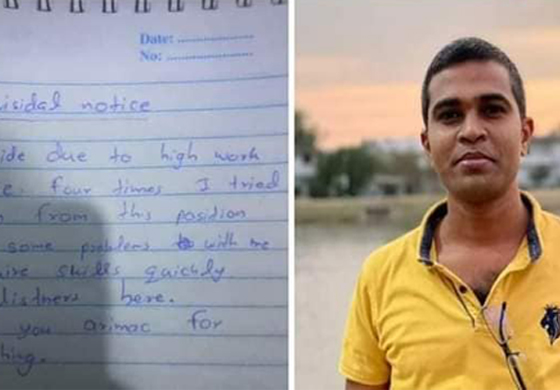 Date:
No:
isidal notice
ide due to high work
e. four times I tried
from this position
some problems with me
ire skills quickly
listners here.
you arimac for
hing.